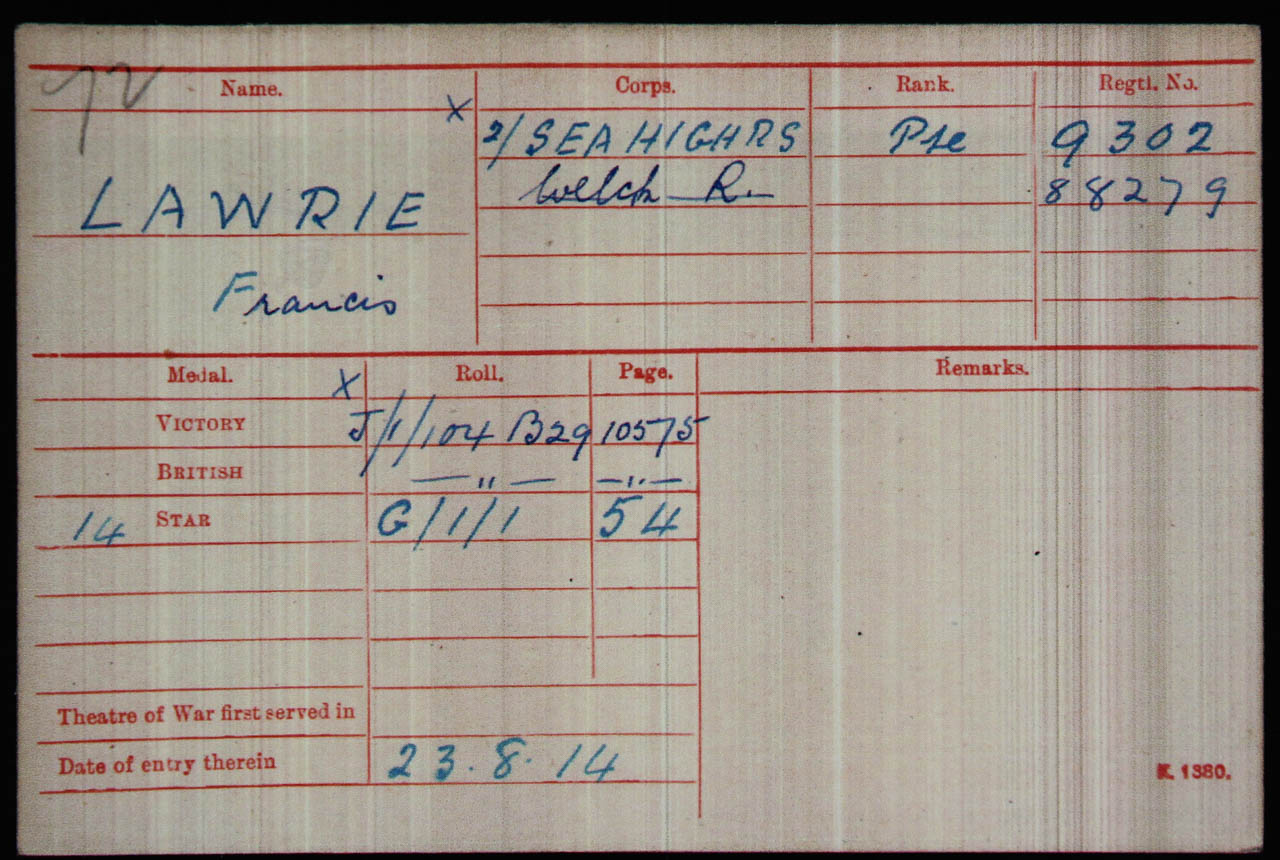 Name. Corps. Rank. Regtl. No.
X 2/ SEA HIGHRS Pte 9302
LAWRIE Welch R. 88279
Francis
Medal. X Roll. Page. Remarks.
VICTORY J/1/104 B29 10575
BRITISH — " — — " —
14 STAR G/1/1 54
Theatre of War first served in
Date of entry therein 23.8.14
K. 1380.